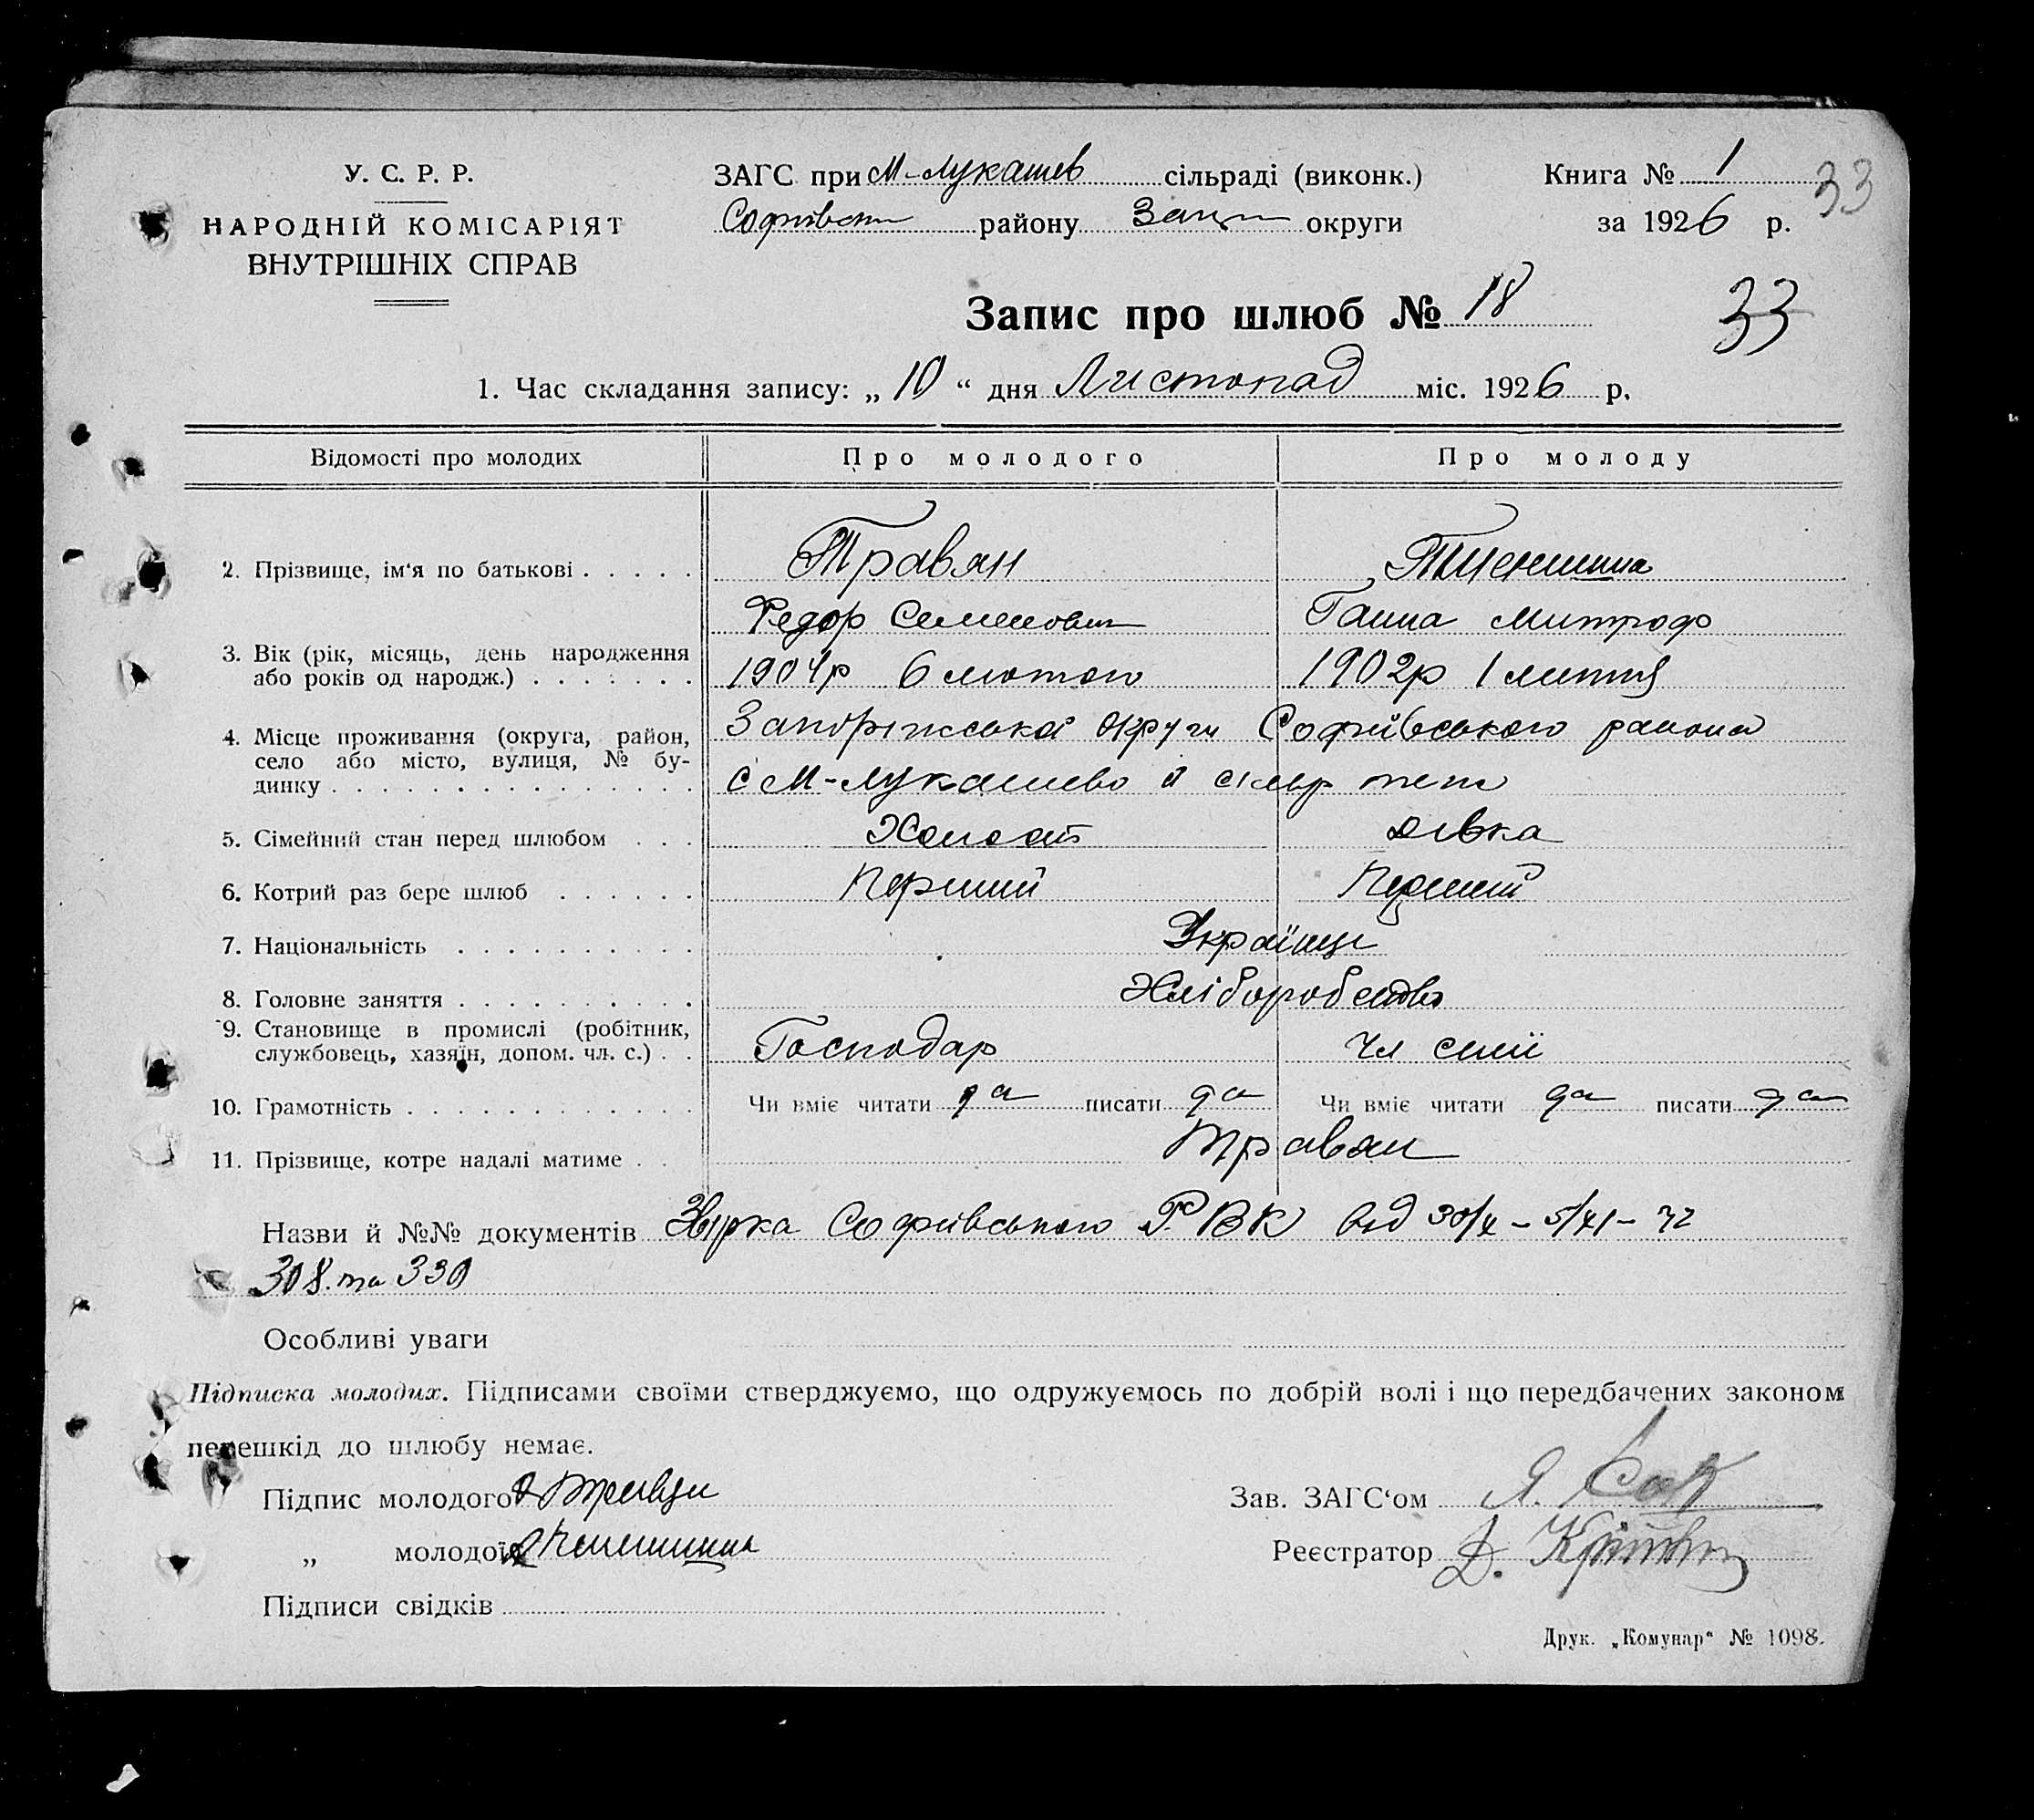 У. С. Р. Р.
НАРОДНІЙ КОМІСАРІЯТ
ВНУТРІШНІХ СПРАВ
ЗАГС при М-Лукашев сільраді (виконк.)
Софиївськ району Зап округи
Книга № 1
за 1926 р.
33
Запис про шлюб № 18
33
1. Час складання запису: „ 10 “ дня Листопад міс. 1926 р.
Відомості про молодих Про молодого Про молоду
2. Прізвище, ім‘я по батькові . . . . . Травян
Федор Семенович Ганна Митроф
3. Вік (рік, місяць, день народження
або років од народж.) . . . . . . . 1904р 6 лютого 1902р 1 липня
4. Місце проживання (округа, район, Запоріжської округи Софиївського района
село або місто, вулиця, № бу-
динку . . . . . . . . . . . . . . . с М-Лукашево
5. Сімейний стан перед шлюбом . . . Холост дівка
6. Котрий раз бере шлюб . . . . . . Перший Перший
7. Національність . . . . . . . . . . Українці
8. Головне заняття . . . . . . . . . . Хліборобство
9. Становище в промислі (робітник,
службовець, хазяїн, допом. чл. с.) . . Господар Чл симї
10. Грамотність . . . . . . . . . . . . Чи вміє читати да писати да Чи вміє читати да писати да
11. Прізвище, котре надалі матиме . . Травян
Назви й №№ документів Софиївського Р.В.К від 30/X – 5/XI –
308 та 330
Особливі уваги
Підписка молодих. Підписами своїми стверджуємо, що одружуємось по добрій волі і що передбачених законом
перешкід до шлюбу немає.
Підпис молодого
„ молодої
Підписи свідків
Зав. ЗАГС‘ом Я.
Реєстратор Д.
Друк. „Комунар“ № 1098.